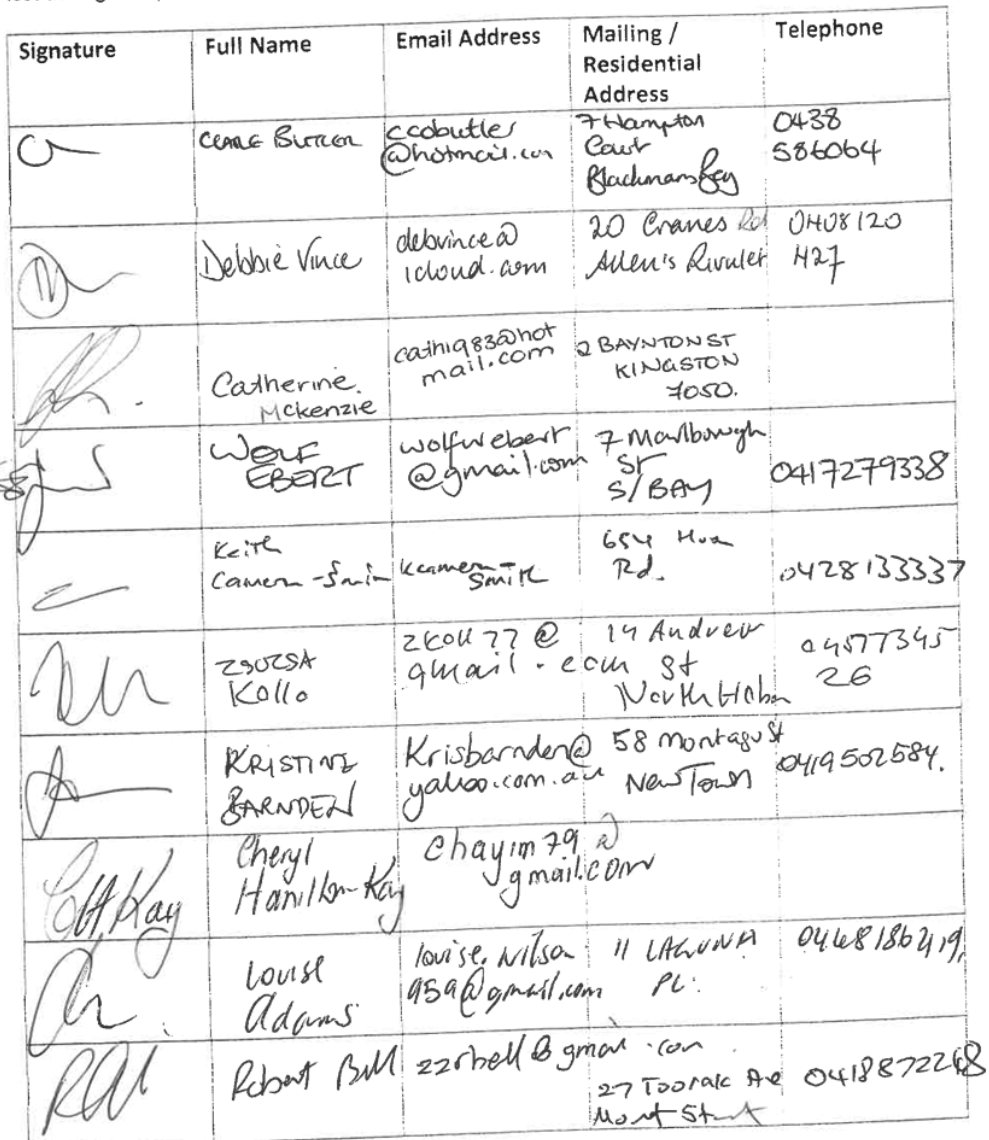 Signature
Full Name
Email Address
Mailing /
Residential
Address
Telephone
BUTLER
ccobutler
@hotmail.com
7 Hampton
Court
Blackmans Bay
0438
586064
Debbie Vince
debvince@
icloud.com
20 Cranes Rd
Allen's Rivulet
0408120
427
Catherine
Mckenzie
cathi983@hot
mail.com
2 BAYNTON ST
KINGSTON
7050.
WOLF
EBERT
wolfwebert
@gmail.com
7 Marlborough
St
S/BAY
0417279338
Keith
Cameron-Smith
kcameron-
Smith
654 Huon
Rd.
0428133337
ZSUZSA
Kollo
zkoll77@
gmail.com
14 Andrew
St
North Hobart
04577345
26
KRISTINE
BARNDEN
Krisbarnden@
yahoo.com.au
58 Montagu St
New Town
0419502584.
Cheryl
Hamilton-Kay
chayim79@
gmail.com
Louise
Adams
louise.wilson
959@gmail.com
11 LAGUNA
PL.
Robert Bell
zzrbell@gmail.com
27 Toorak Ave
Mount Stuart